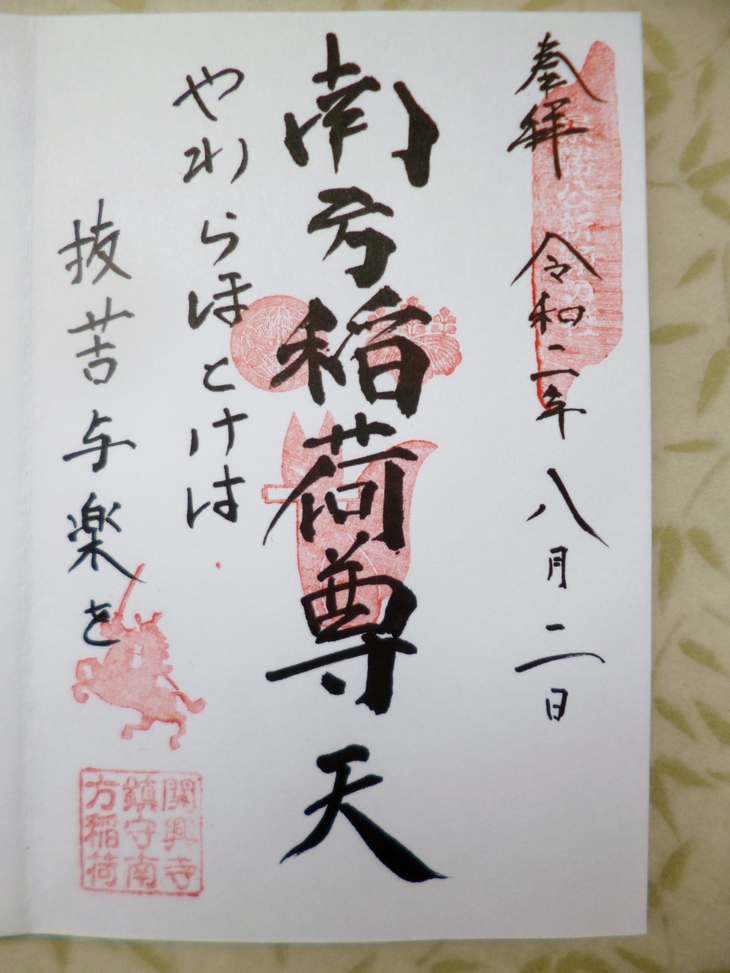 奉拝 令和二年八月二日
南方稲荷尊天
やわらほとけは
抜苦与楽を
関興寺
鎮守南
方稲荷